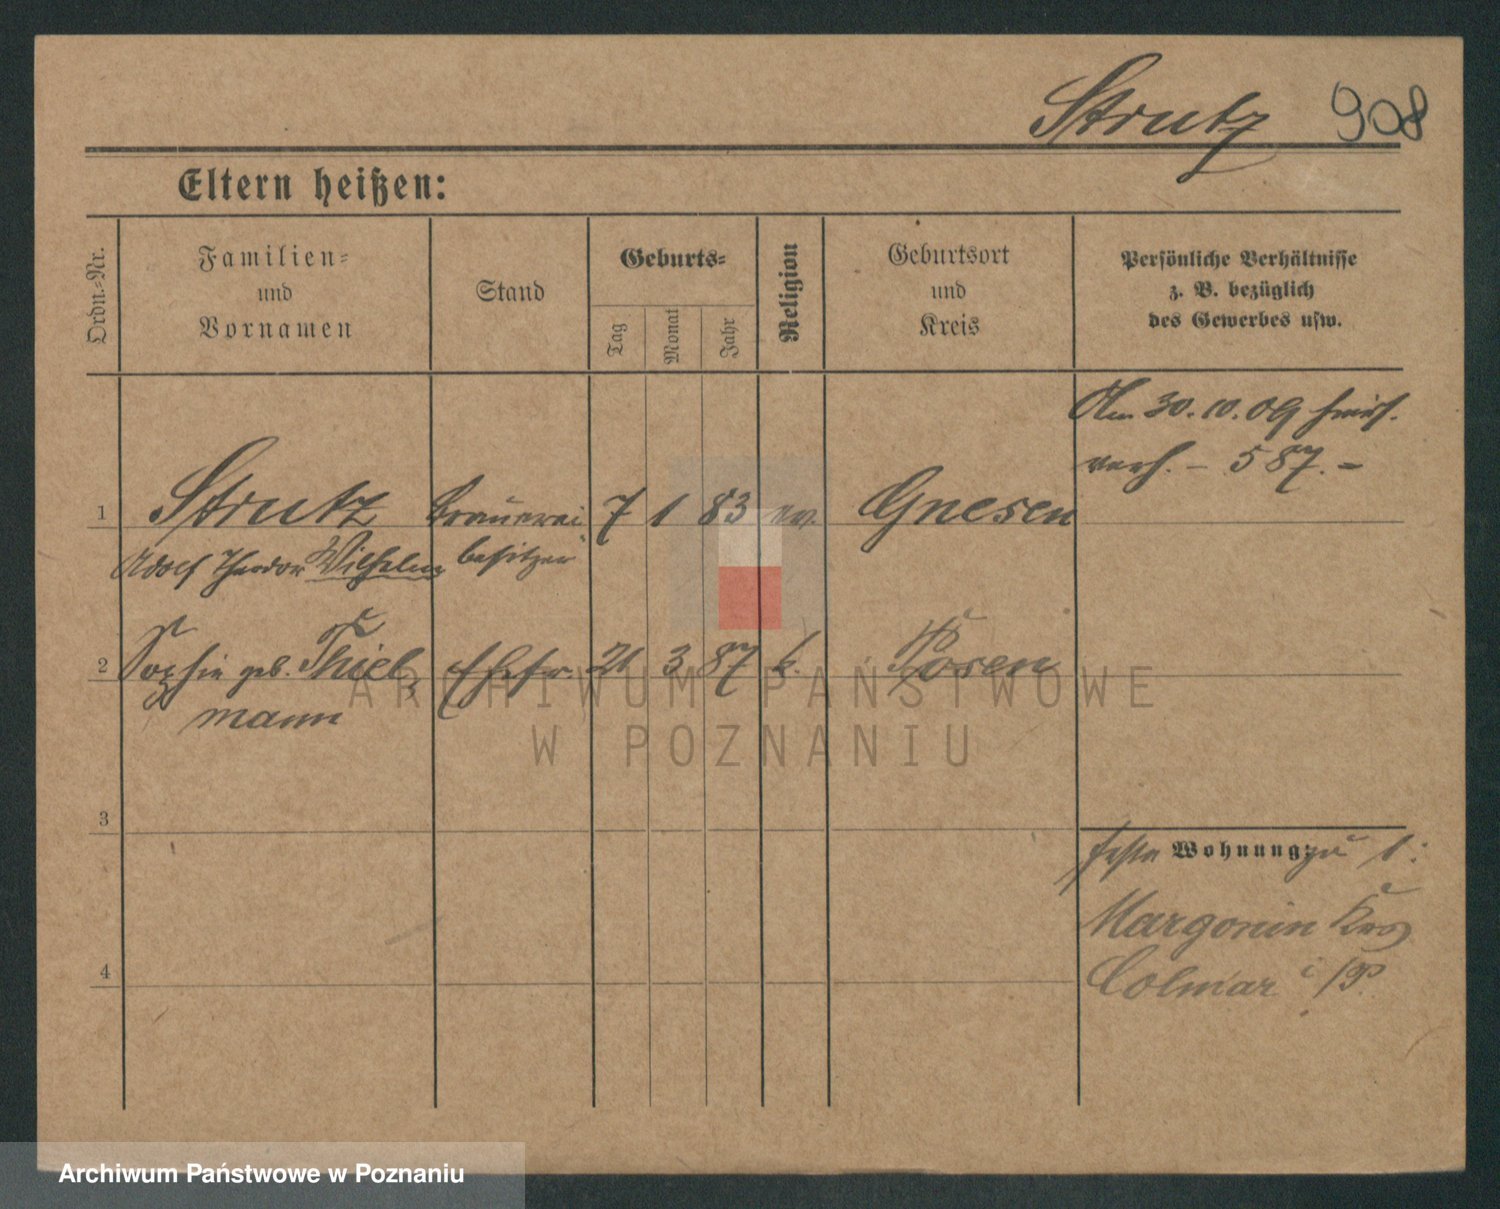 Strutz 908
Eltern heißen:
Ordn.-Nr.
Familien-
und
Vornamen
Stand
Geburts-
Tag
Monat
Jahr
Religion
Geburtsort
und
Kreis
Persönliche Verhältnisse
z. B. bezüglich
des Gewerbes usw.
Am 30.10.09 hier
verh. – 587. –
1 Strutz Brauerei 7 1 83 ev. Gnesen
Adolf Theodor Wilhelm besitzer
2 Sophie geb. Thiel Ehefr. 21 3 87 k. Posen
mann
3
4
feste Wohnung: zu 1:
Margonin Krs
Colmar i/P.
ARCHIWUM PAŃSTWOWE
W POZNANIU
Archiwum Państwowe w Poznaniu